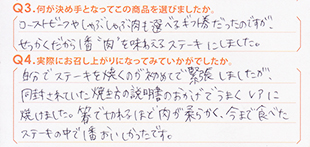 Q3.何が決め手となってこの商品を選びましたか。
ローストビーフやしゃぶしゃぶ肉も選べるギフト券だったのですが、
せっかくだから1番"肉"を味わえるステーキにしました。
Q4.実際にお召し上がりになってみていかがでしたか。
自分でステーキを焼くのが初めてで緊張しましたが、
同封されていた焼き方の説明書のおかげでうまくレアに
焼けました。箸で切れるほど肉が柔らかく、今まで食べた
ステーキの中で1番おいしかったです。